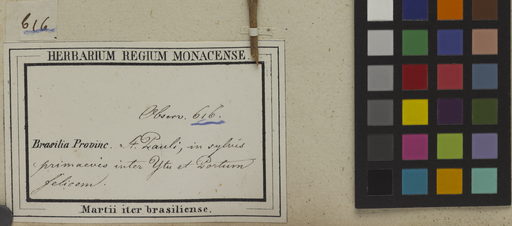 616.
HERBARIUM REGIUM MONACENSE.
Observ. 616.
Brasilia Provinc. S. Pauli, in sylvis
primaevis inter Ytu et Portum
felicem.
Martii iter brasiliense.